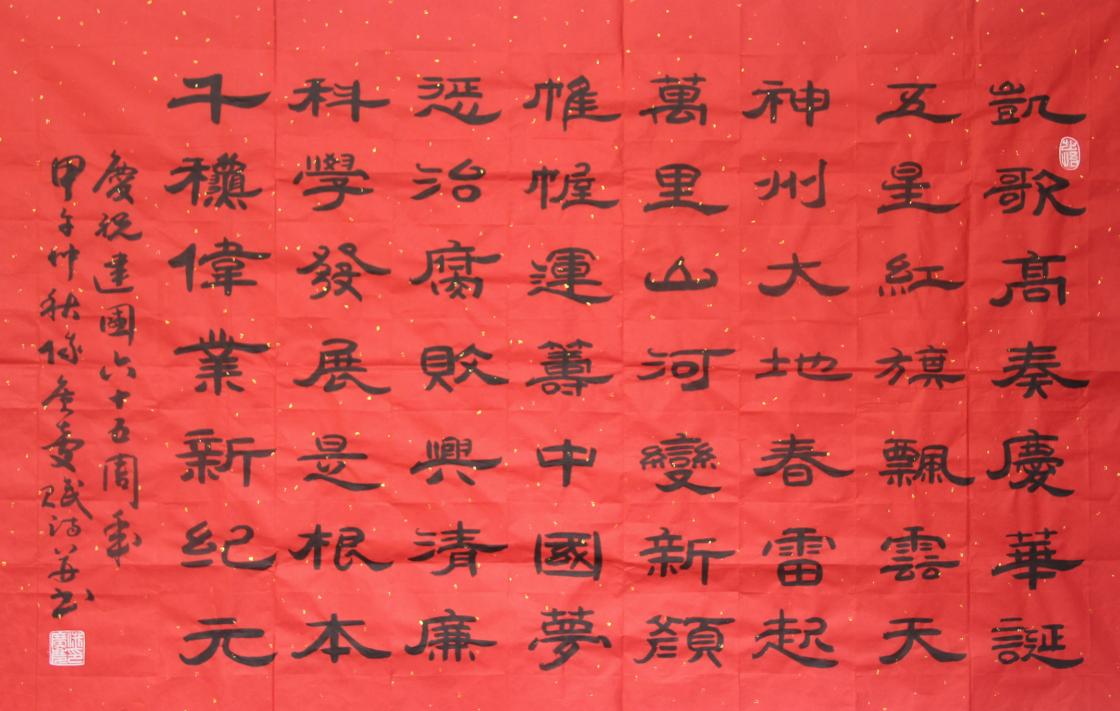 凱歌高奏慶華誕
五星紅旗飄雲天
神州大地春雷起
萬里山河變新顏
帷幄運籌中國夢
懲治腐敗興清廉
科學發展是根本
千穐偉業新紀元
慶祝建國六十五周年
甲午仲秋 賦詩並書